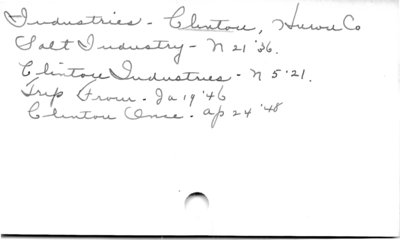 Industries - Clinton, Huron Co
Salt Industry - N 21 '36.
Clinton Industries - N 5 '21.
Trip From - Ja 19 '46
Clinton Once - Ap 24 '48